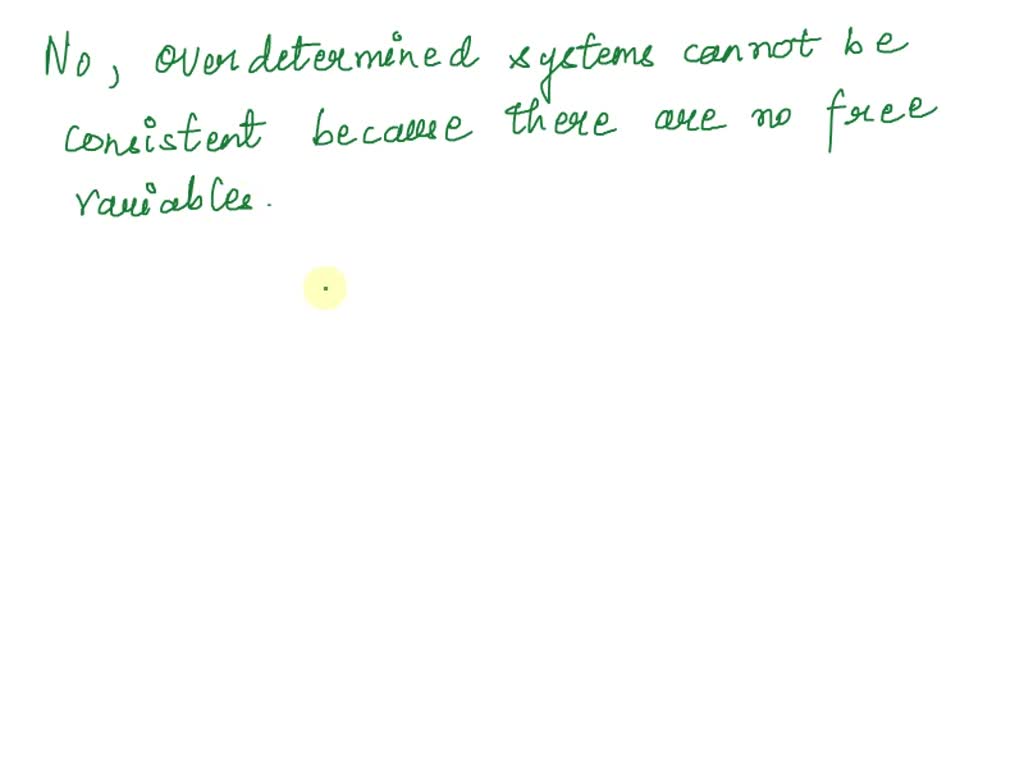 No, overdetermined systems cannot be
consistent because there are no free
variables.